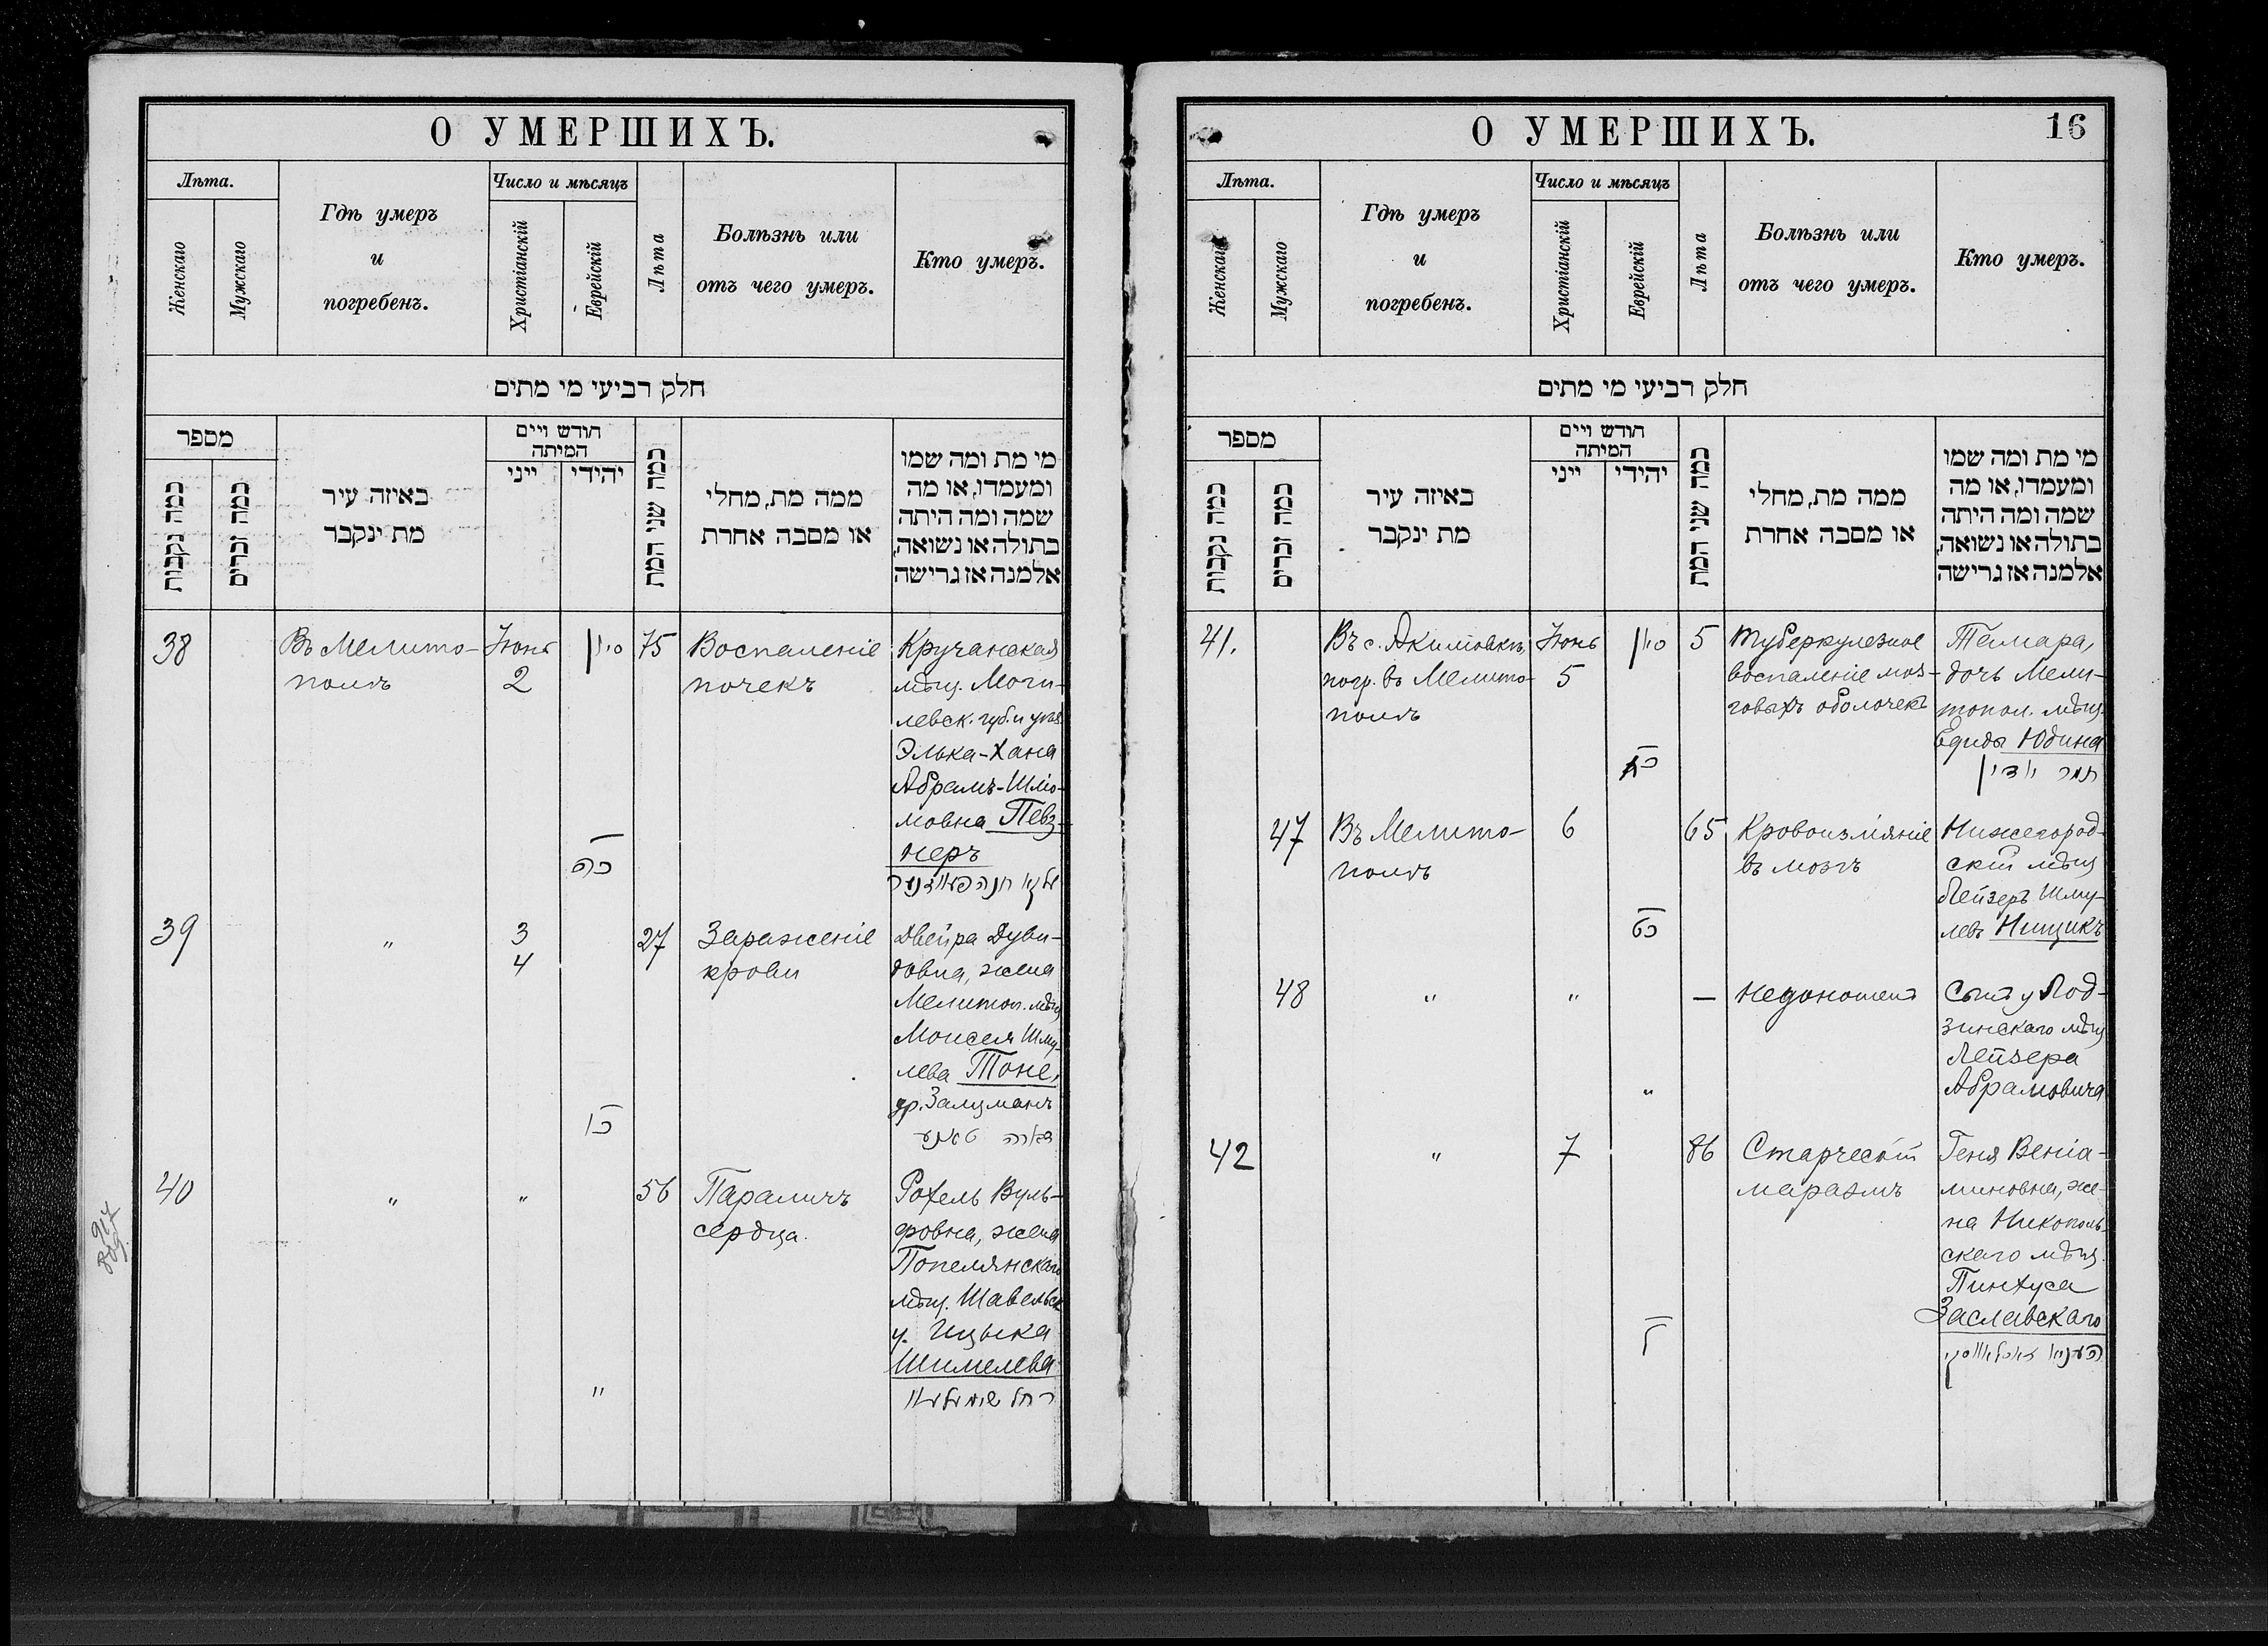 О УМЕРШИХЪ.
Лѣта.
Женскаго
Мужскаго
Гдѣ умеръ
и
погребенъ.
Число и мѣсяцъ
Христіанскій
Еврейскій
Лѣта
Болѣзнь или
отъ чего умеръ.
Кто умеръ.
חלק רביעי מי מתים
מספר
כמה נקבות
כמה זכרים
באיזה עיר
מת ינקבר
חודש ויים
המיתה
ייני
יהידי
כמה שני המת
ממה מת, מחלי
או מסבה אחרת
מי מת ומה שמו
ומעמדו, או מה
שמה ומה היתה
בתולה או נשואה,
אלמנה אז גרישה
38
Въ Мелито-
полѣ
Іюнь
2
סיון
כה
75
Воспаленіе
почекъ
Кручанская
мѣщ. Моги-
левск. губ. и уѣз.
Элька-Хана
Абрамъ-Шлio-
мовна Певз-
неръ
עלקא חנה פעווזנער
39
"
3
4
כו
27
Зараженіе
крови
Двейра Дуви-
довна, жена
Мелитоп. мѣщ
Моисея Шму-
лева Тоне,
ур. Залцманъ
40
"
"
"
56
Параличъ
сердца.
Рохель Вуль-
фовна, жена
Попелянскаго
мѣщ. Шавельск
у. Ицыка
Шимелева
רחל שימעלעוו
917
О УМЕРШИХЪ.
16
Лѣта.
Женскаго
Мужскаго
Гдѣ умеръ
и
погребенъ.
Число и мѣсяцъ
Христіанскій
Еврейскій
Лѣта
Болѣзнь или
отъ чего умеръ.
Кто умеръ.
חלק רביעי מי מתים
מספר
כמה נקבות
כמה זכרים
באיזה עיר
מת ינקבר
חודש ויים
המיתה
ייני
יהידי
כמה שני המת
ממה מת, מחלי
או מסבה אחרת
מי מת ומה שמו
ומעמדו, או מה
שמה ומה היתה
בתולה או נשואה,
אלמנה אז גרישה
41.
Въ с. Акимовкѣ,
погр. въ Мелито-
полѣ
Іюнь
5
סיון
5
Туберкулезное
воспаленіе моз-
говыхъ оболочекъ
Тамара,
дочь Мели-
топол. мѣщ.
Едиды Юдина
תמר יודין
47
Въ Мелито-
полѣ
6
כט
65
Кровоизліяніе
въ мозгъ
Нижегород-
скій мѣщ
Лейзеръ Шму-
левъ Нищикъ
48
"
"
"
—
Недоношенъ
Сынъ у Лод-
зинскаго мѣщ
Лейзера
Абрамовича
42
"
7
ל
86
Старческій
маразмъ
Геня Веніа-
миновна, же-
на Никополь-
скаго мѣщ.
Пинхуса
Заславскаго